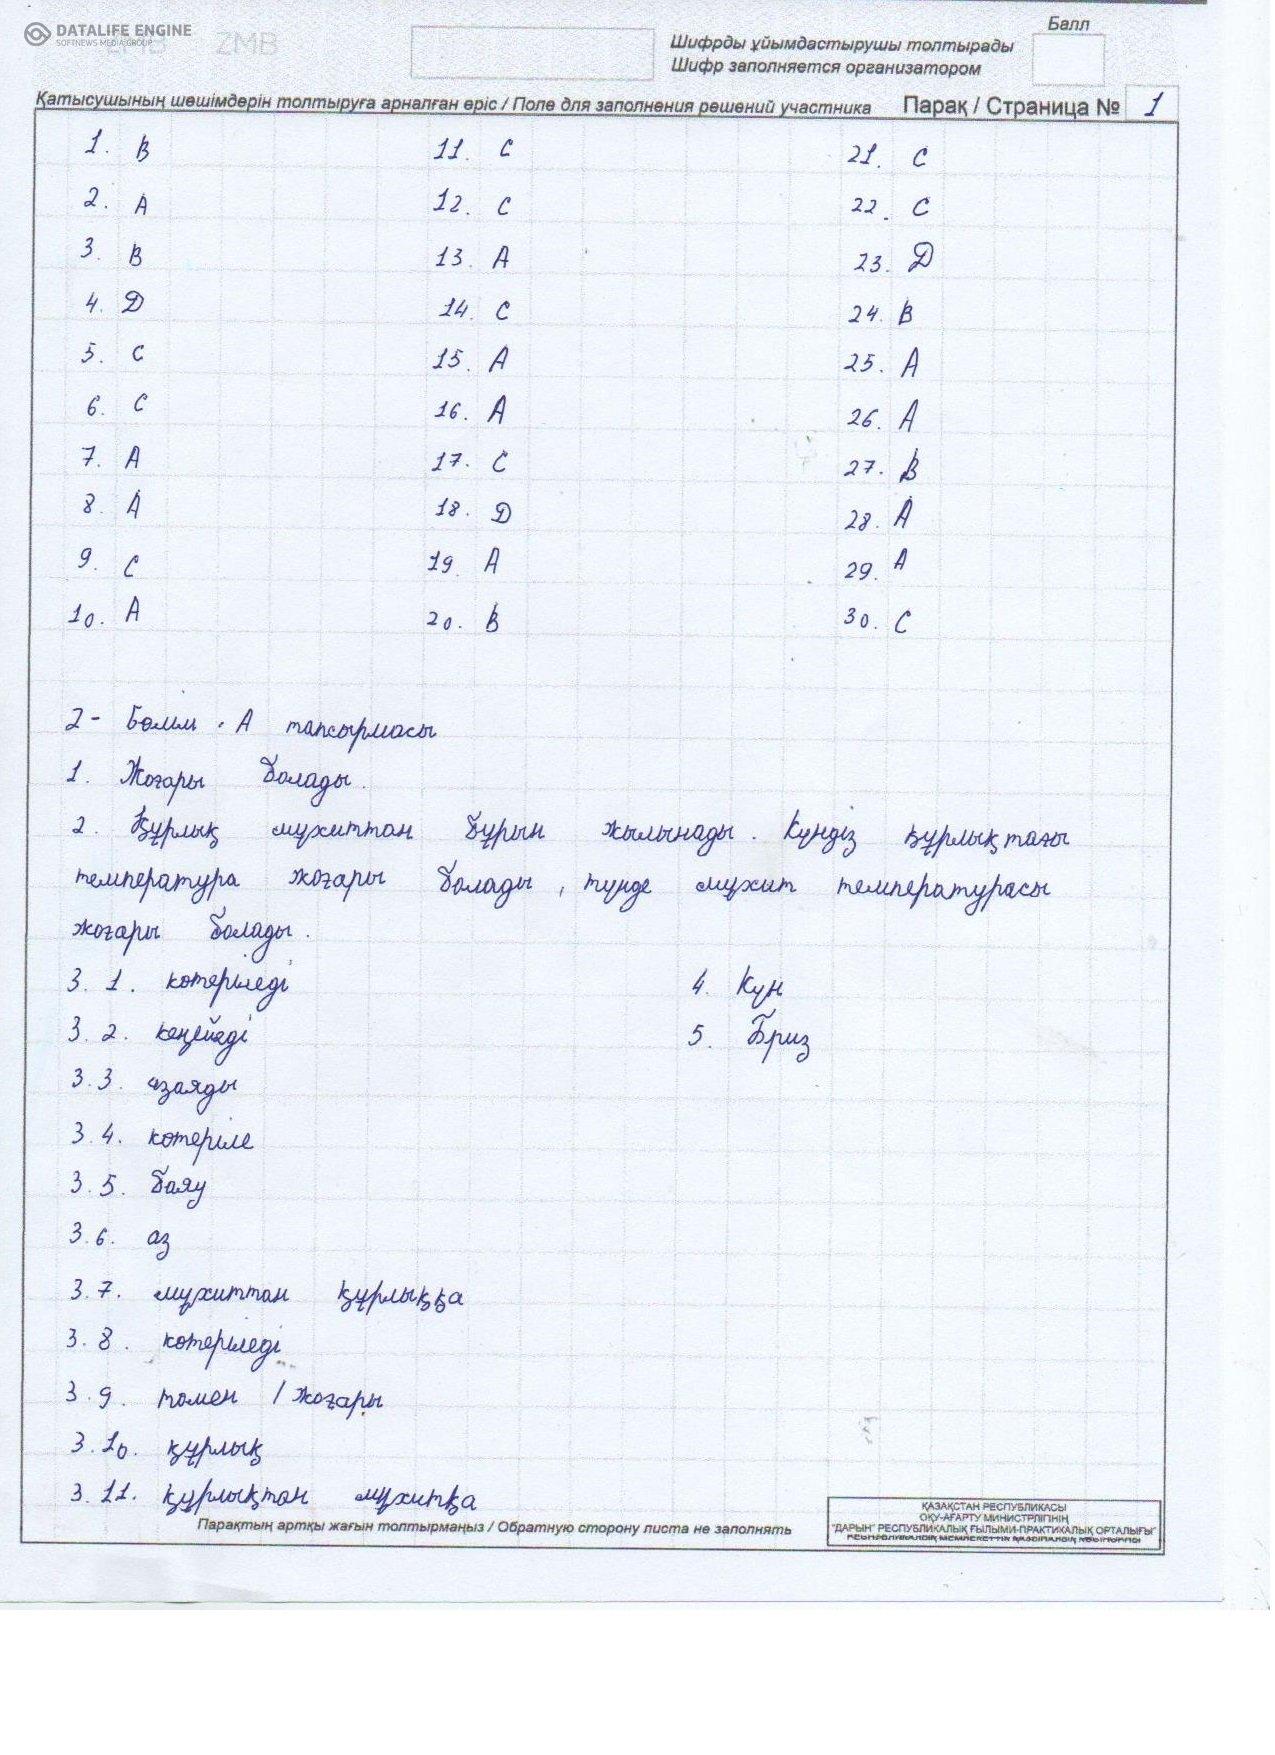 DATALIFE ENGINE
SOFTNEWS MEDIA GROUP
ZMB ZMB
Балл
Шифрды ұйымдастырушы толтырады
Шифр заполняется организатором
Қатысушының шешімдерін толтыруға арналған өріс / Поле для заполнения решений участника Парақ / Страница № 1
1. B 11. C 21. C
2. A 12. C 22. C
3. B 13. A 23. Д
4. Д 14. C 24. B
5. C 15. A 25. A
6. C 16. A 26. A
7. A 17. C 27. B
8. A 18. Д 28. A
9. C 19. A 29. A
10. A 20. B 30. C
2- Бөлім. А тапсырмасы
1. Жоғары болады.
2. Құрлық мұхиттан бұрын жылынады. Күндіз құрлықтағы
температура жоғары болады, түнде мұхит температурасы
жоғары болады.
3. 1. көтеріледі 4. Күн
3. 2. кеңейеді 5. Бриз
3.3. азаяды
3.4. көтеріле
3.5. баяу
3.6. аз
3.7. мұхиттан құрлыққа
3.8. көтеріледі
3.9. төмен / жоғары
3.10. құрлық
3.11. құрлықтан мұхитқа
Парақтың артқы жағын толтырмаңыз / Обратную сторону листа не заполнять
ҚАЗАҚСТАН РЕСПУБЛИКАСЫ
ОҚУ-АҒАРТУ МИНИСТРЛІГІНІҢ
"ДАРЫН" РЕСПУБЛИКАЛЫҚ ҒЫЛЫМИ-ПРАКТИКАЛЫҚ ОРТАЛЫҒЫ"
РЕСПУБЛИКАЛЫҚ МЕМЛЕКЕТТІК ҚАЗЫНАЛЫҚ КӘСІПОРНЫ